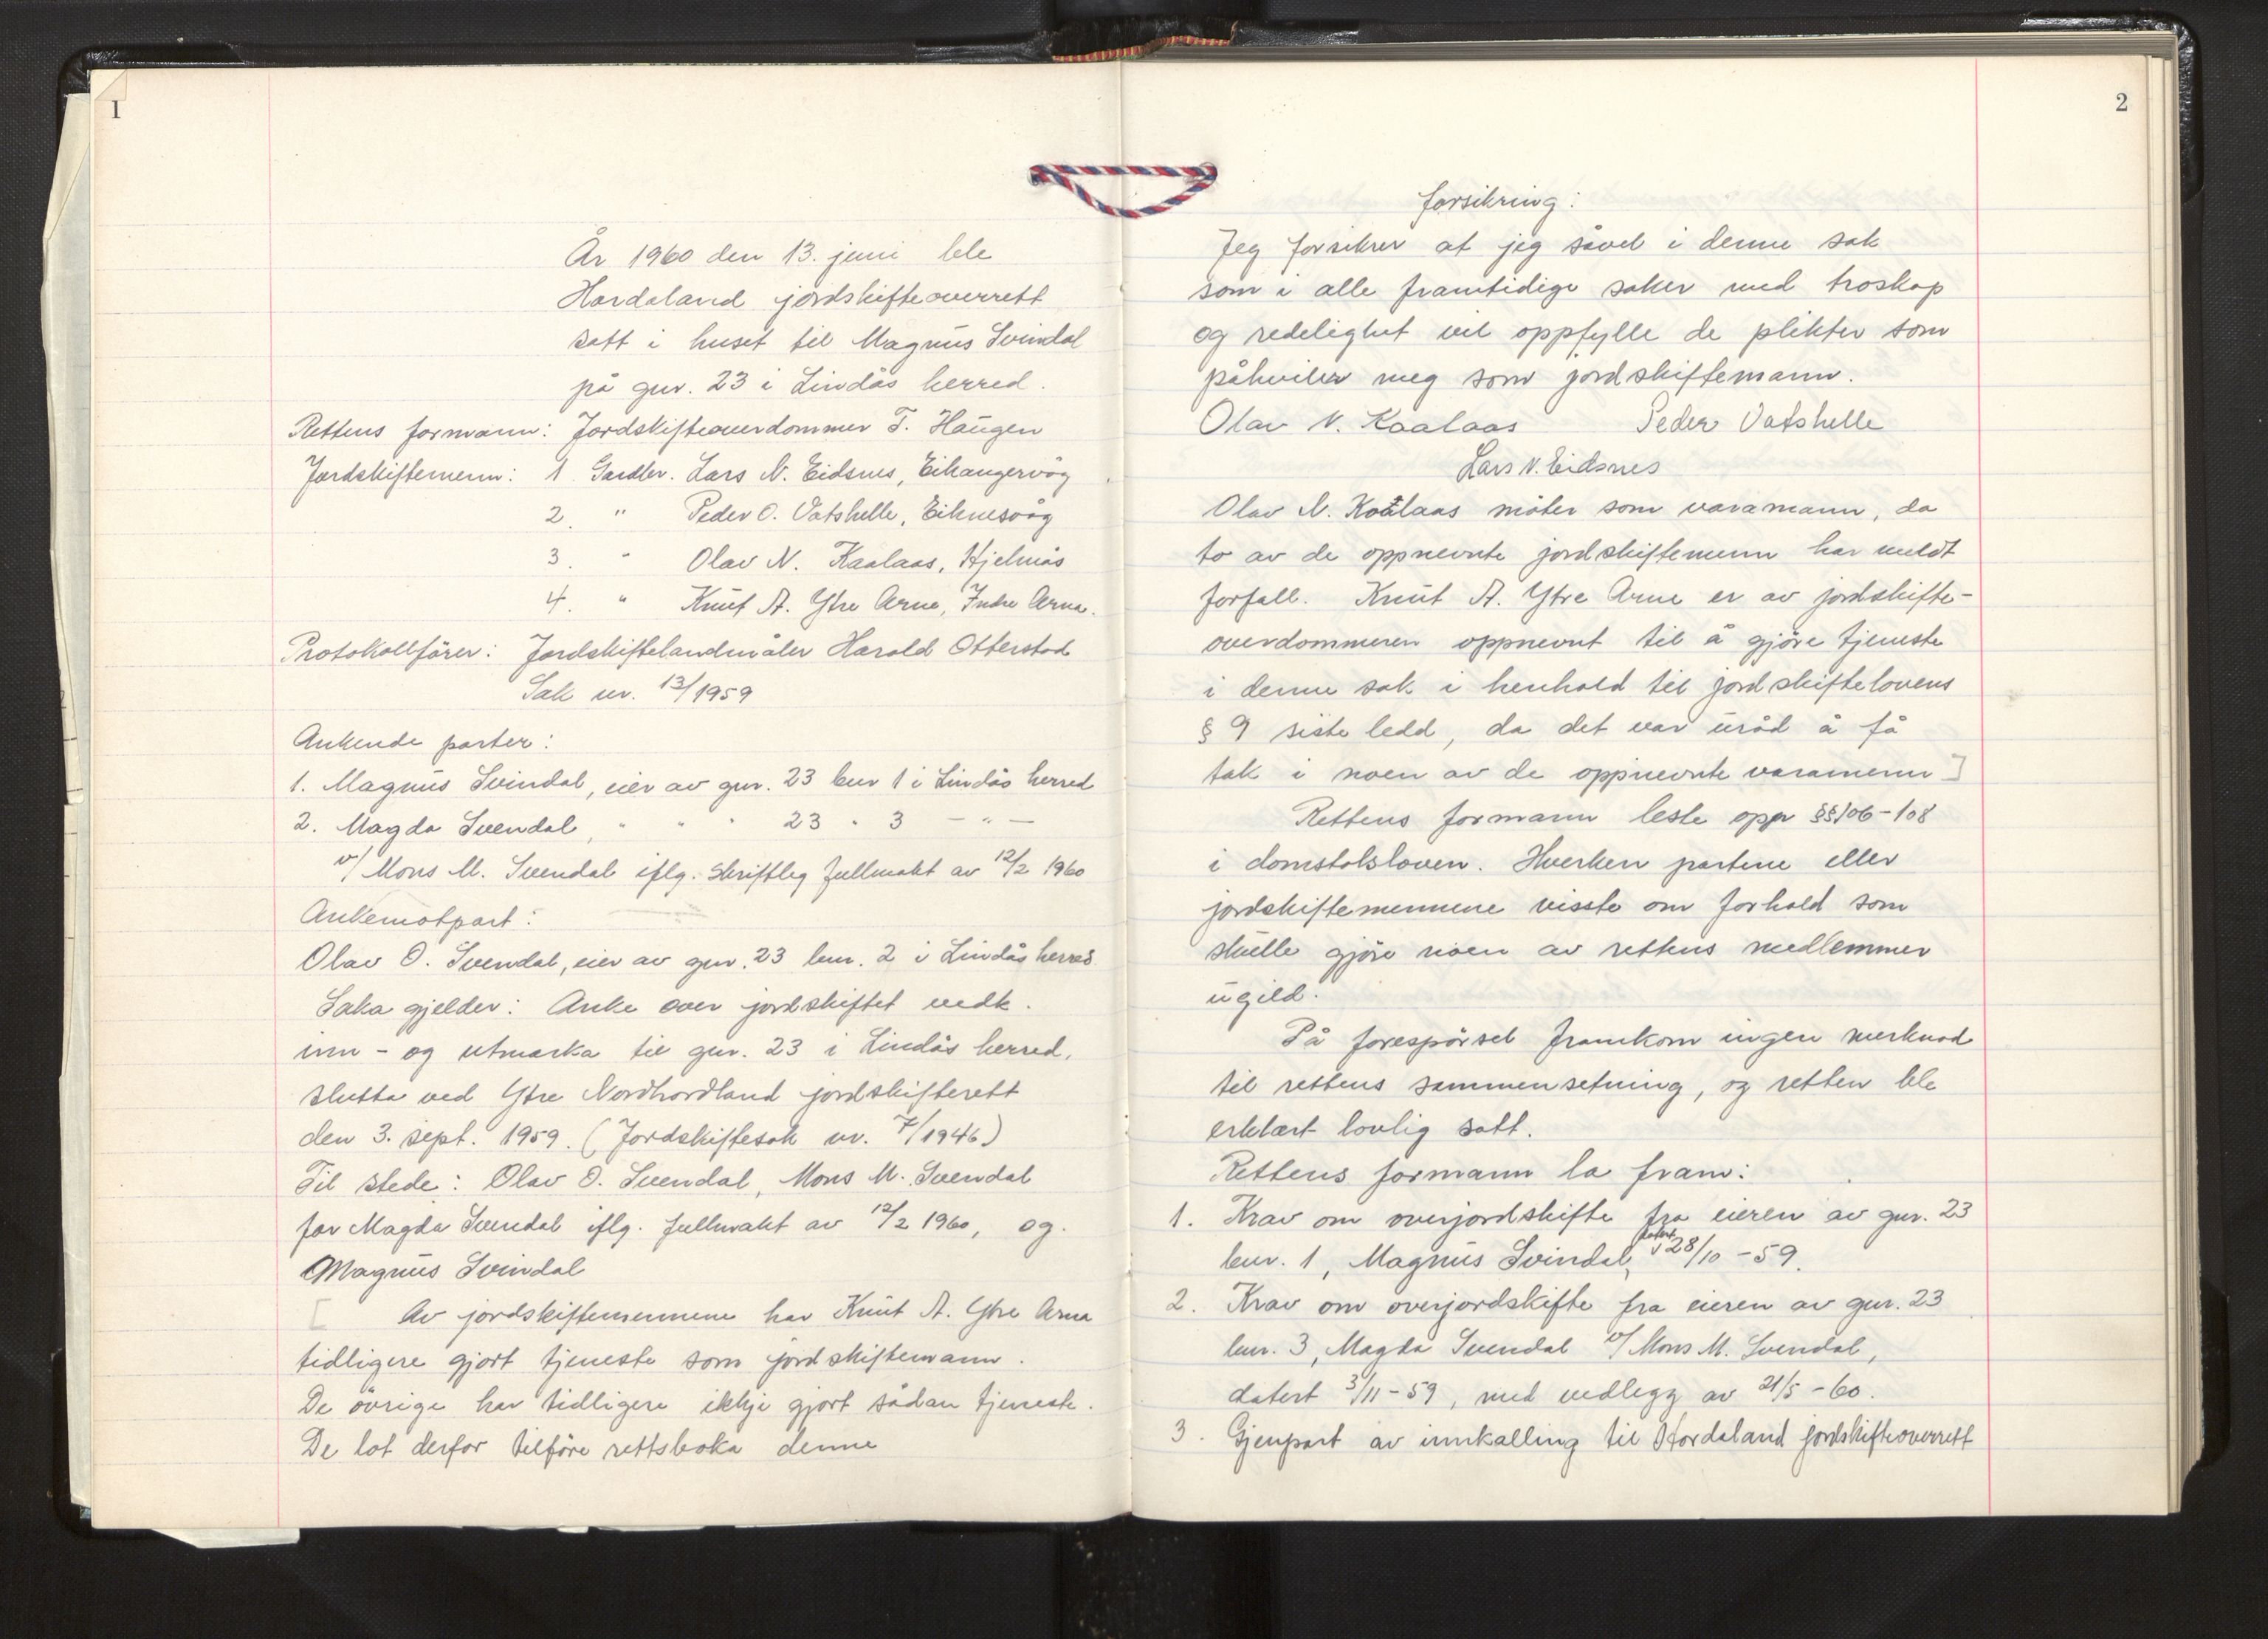 1
År 1960 den 13. juni ble
Hordaland jordskifteoverrett
satt i huset til Magnus Svindal
på gnr. 23 i Lindås herred.
Rettens formann: Jordskifteoverdommer T. Haugen
Jordskiftemenn: 1 Gardbr. Lars N. Eidsnes, Eikangervåg
2. " Peder O. Vatshelle, Eiknesvåg
3. " Olav N. Kaalaas, Hjelmås
4. " Knut A. Ytre Arne, Indre Arna.
Protokollfører: Jordskiftelandmåler Harald Otterstad
Sak nr. 13/1959
Ankende parter:
1. Magnus Svindal, eier av gnr. 23 bnr 1 i Lindås herred
2. Magda Svendal, " " " 23 " 3 — " —
v/ Mons M. Svendal iflg. skriftleg fullmakt av 12/2 1960
Ankemotpart:
Olav O. Svendal, eier av gnr. 23 bnr. 2 i Lindås herred
Saka gjelder: Anke over jordskiftet vedk.
inn- og utmarka til gnr. 23 i Lindås herred,
slutta ved Ytre Nordhordland jordskifterett
den 3. sept. 1959. (Jordskiftesak nr. 7/1946)
Til stede: Olav O. Svendal, Mons M. Svendal
for Magda Svendal iflg. fullmakt av 12/2 1960, og
Magnus Svindal
[ Av jordskiftemennene har Knut A. Ytre Arna
tidligere gjort tjeneste som jordskiftemann.
De øvrige har tidligere ikkje gjort sådan tjeneste.
De lot derfor tilføre rettsboka denne
2
forsikring:
Jeg forsikrer at jeg såvel i denne sak
som i alle framtidige saker med troskap
og redelighet vil oppfylle de plikter som
påhviler meg som jordskiftemann.
Olav N. Kaalaas Peder Vatshelle
Lars N. Eidsnes
Olav N. Kaalaas møter som varamann, da
to av de oppnevnte jordskiftemenn har meldt
forfall. Knut A. Ytre Arne er av jordskifte-
overdommeren oppnevnt til å gjøre tjeneste
i denne sak i henhold til jordskiftelovens
§ 9 siste ledd, da det var uråd å få
tak i noen av de oppnevnte varamenn ]
Rettens formann leste opp §§ 106-108
i domstolsloven. Hverken partene eller
jordskiftemennene visste om forhold som
skulle gjøre noen av rettens medlemmer
ugild.
På forespørsel framkom ingen merknad
til rettens sammensetning, og retten ble
erklært lovlig satt.
Rettens formann la fram:
1. Krav om overjordskifte fra eieren av gnr. 23
bnr. 1, Magnus Svindal, datert 28/10 -59.
2. Krav om overjordskifte fra eieren av gnr. 23
bnr. 3, Magda Svendal v/ Mons M. Svendal,
datert 3/11-59, med vedlegg av 21/5 -60.
3. Gjenpart av innkalling til Hordaland jordskifteoverrett